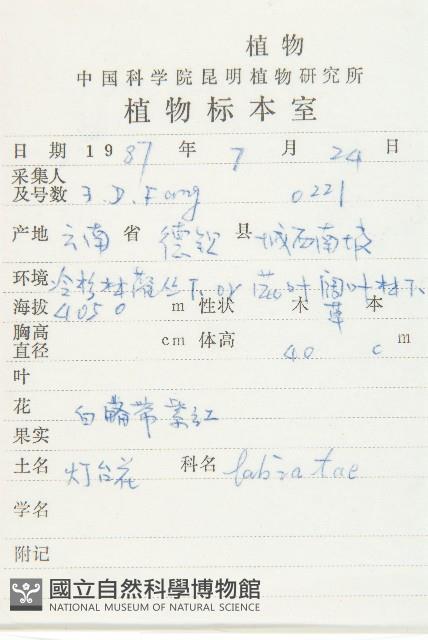 植物
中国科学院昆明植物研究所
植物标本室
日期 1987 年 7 月 24 日
采集人
及号数 Y. D. Fang 0221
产地 云南 省 德钦 县 城西南坡
环境 冷杉林灌丛下 or 落叶阔叶林下
海拔 4050 m 性状 木 草 本
胸高
直径 cm 体高 40 cm
叶
花 白略带紫红
果实
土名 灯台花 科名 labiatae
学名
附记
國立自然科學博物館
NATIONAL MUSEUM OF NATURAL SCIENCE